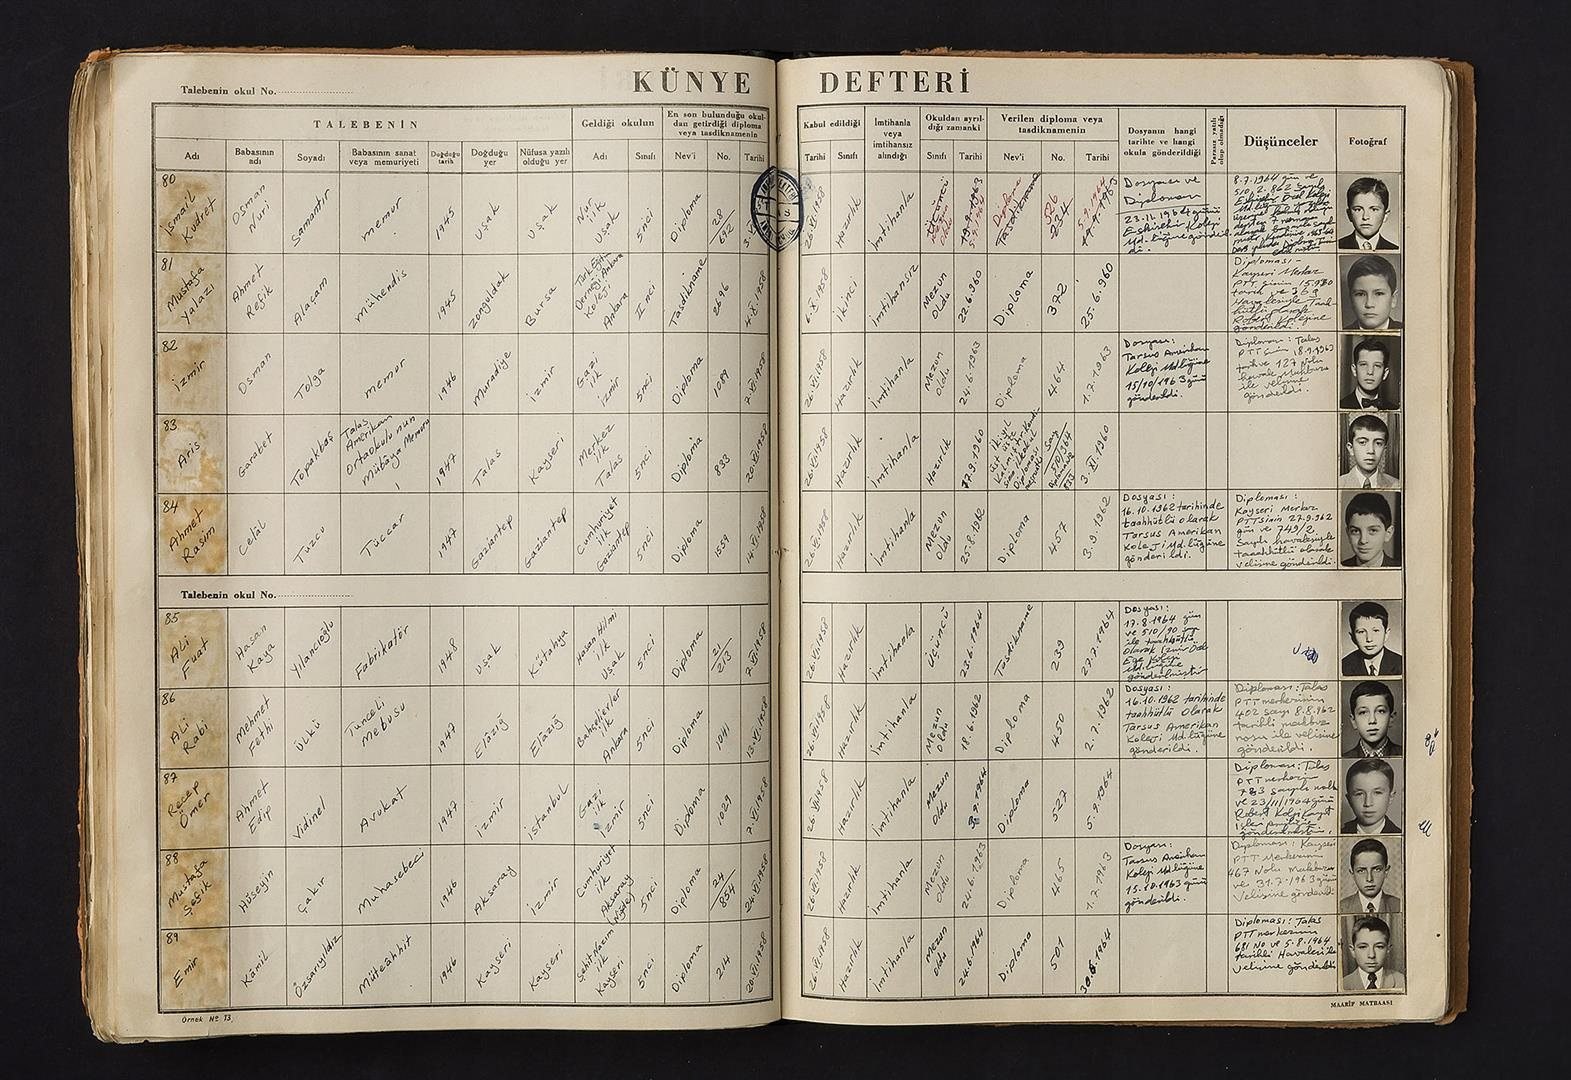 KÜNYE DEFTERİ
Talebenin okul No.
TALEBENİN
Geldiği okulun
En son bulunduğu okul-
dan getirdiği diploma
veya tasdiknamenin
Kabul edildiği
İmtihanla
veya
imtihansız
alındığı
Okuldan ayrıl-
dığı zamanki
Verilen diploma veya
tasdiknamenin
Dosyanın hangi
tarihte ve hangi
okula gönderildiği
Parasız yatılı
olup olmadığı
Düşünceler
Fotoğraf
Adı
Babasının
adı
Soyadı
Babasının sanat
veya memuriyeti
Doğduğu
tarih
Doğduğu
yer
Nüfusa yazılı
olduğu yer
Adı
Sınıfı
Nev'i
No.
Tarihi
Tarihi
Sınıfı
Sınıfı
Tarihi
Nev'i
No.
Tarihi
80
İsmail
Kudret
Osman
Nuri
Samantır
memur
1945
Uşak
Uşak
Nur
ilk
Uşak
5nci
Diploma
28
692
26.VI.1958
Hazırlık
İmtihanla
Diploma
Tasdikname
526
234
5.9.1964
Dosyası ve
Diploması
23.11.1964 günü
Eskişehir Koleji
Md.lüğüne gönderil
di.
8.7.1964 gün ve
81
Mustafa
Yalazı
Ahmet
Refik
Alaçam
mühendis
1945
Zonguldak
Bursa
Türk Eğitim
Derneği Ankara
Koleji
Ankara
II nci
Tasdikname
2696
4.X.1958
6.X.1958
İkinci
İmtihansız
Mezun
Oldu
22.6.960
Diploma
372
25.6.960
Diploması -
Kayseri Merkez
gönderildi.
82
İzmir
Osman
Tolga
memur
1946
Muradiye
İzmir
Gazi
ilk
İzmir
5nci
Diploma
1089
7.VI.1958
26.VI.1958
Hazırlık
İmtihanla
Mezun
Oldu
24.6.1963
Diploma
464
1.7.1963
Dosyası:
Tarsus Amerikan
Koleji Md.lüğüne
15/10/1963 günü
gönderildi.
Diploması: Talas
PTT sinin 18.9.1963
tarih ve 127 nolu
havale makbuzu
ile velisine
gönderildi.
83
Aris
Garabet
Topakbaş
Talas
Amerikan
Ortaokulu'nun
Mübayaa Memuru
1947
Talas
Kayseri
Merkez
ilk
Talas
5nci
Diploma
833
20.VI.1958
26.VI.1958
Hazırlık
İmtihanla
Hazırlık
3.XI.1960
84
Ahmet
Rasim
Celâl
Tuzcu
Tüccar
1947
Gaziantep
Gaziantep
Cumhuriyet
ilk
Gaziantep
5nci
Diploma
1559
14.VI.1958
26.VI.1958
Hazırlık
İmtihanla
Mezun
Oldu
25.8.1962
Diploma
457
3.9.1962
Dosyası:
16.10.1962 tarihinde
taahhütlü olarak
Tarsus Amerikan
Koleji Md.lüğüne
gönderildi.
Diploması:
Kayseri Merkez
PTTsinin 27.9.962
gün ve 749/2
sayılı havalesiyle
taahhütlü olarak
velisine gönderildi.
Talebenin okul No.
85
Ali
Fuat
Hasan
Kaya
Yılancıoğlu
Fabrikatör
1948
Uşak
Kütahya
Hasan Hilmi
ilk
Uşak
5nci
Diploma
21
213
7.VI.1958
26.VI.1958
Hazırlık
İmtihanla
Üçüncü
23.6.1964
Tasdikname
239
27.7.1964
Dosyası:
17.8.1964 gün
ve 510/90 sayı
ile taahhütlü
olarak İzmir Özel
Ege Koleji
Md.lüğüne
gönderilmiştir
86
Ali
Rabi
Mehmet
Fethi
Ülkü
Tunceli
Mebusu
1947
Elazığ
Elazığ
Bahçelievler
ilk
Ankara
5nci
Diploma
1041
13.VI.1958
26.VI.1958
Hazırlık
İmtihanla
Mezun
Oldu
18.6.1962
Diploma
450
2.7.1962
Dosyası:
16.10.1962 tarihinde
taahhütlü olarak
Tarsus Amerikan
Koleji Md.lüğüne
gönderildi.
Diploması: Talas
PTT merkezinin
402 sayı 8.8.962
tarihli makbuz
nosu ile velisine
gönderildi.
87
Recep
Ömer
Ahmet
Edip
Vidinel
Avukat
1947
İzmir
İstanbul
Gazi
ilk
İzmir
5nci
Diploma
1029
7.VI.1958
26.VI.1958
Hazırlık
İmtihanla
Mezun
Oldu
Diploma
527
5.9.1964
Diploması: Talas
PTT merkezin
783 sayılı nolu
ve 23/11/1964 günü
Robert Koleji Kayıt
gönderilmiştir.
88
Mustafa
Şefik
Hüseyin
Çakır
Muhasebeci
1946
Aksaray
İzmir
Cumhuriyet
ilk
Aksaray
Niğde
5nci
Diploma
24
854
24.VI.1958
26.VI.1958
Hazırlık
İmtihanla
Mezun
Oldu
24.6.1963
Diploma
465
1.7.1963
Dosyası:
Tarsus Amerikan
Koleji Md.lüğüne
15.10.1963 günü
gönderildi.
Diploması: Kayseri
PTT Merkezinin
467 Nolu Makbuzu
ve 31.7.1963 günü
Velisine gönderildi
89
Emir
Kâmil
Özsarıyıldız
Müteahhit
1946
Kayseri
Kayseri
Şehit Nazım
ilk
Kayseri
5nci
Diploma
214
20.VI.1958
26.VI.1958
Hazırlık
İmtihanla
Mezun
oldu
24.6.1964
Diploma
501
30.6.1964
Diploması: Talas
PTT merkezinin
681 No ve 5.8.1964
tarihli Havalesi ile
velisine gönderildi
Örnek No 13.
MAARİF MATBAASI